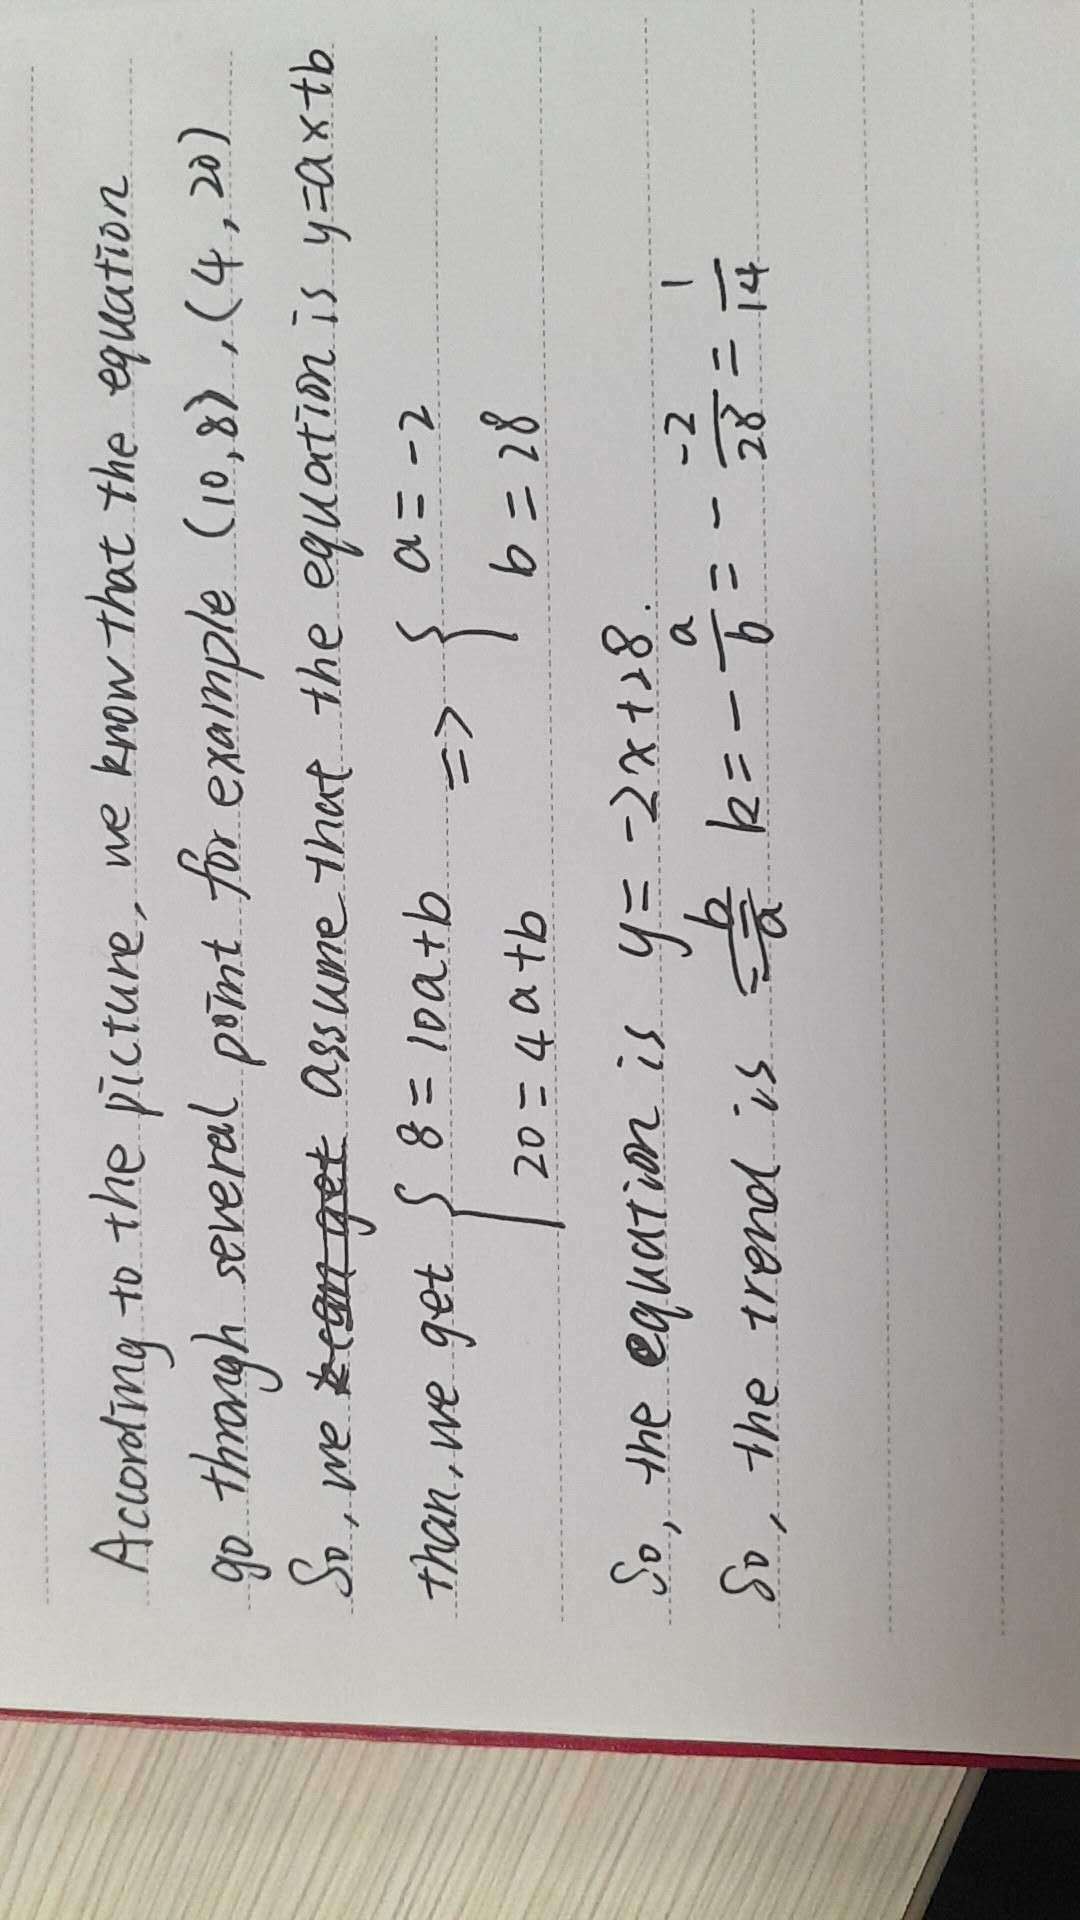 According to the picture, we know that the equation
go through several point for example (10,8), (4,20)
So, we assume that the equation is y=ax+b
than, we get { 8=10a+b => { a=-2
20=4a+b b=28
So, the equation is y=-2x+28.
So, the trend is k=-a/b=-(-2)/28=1/14